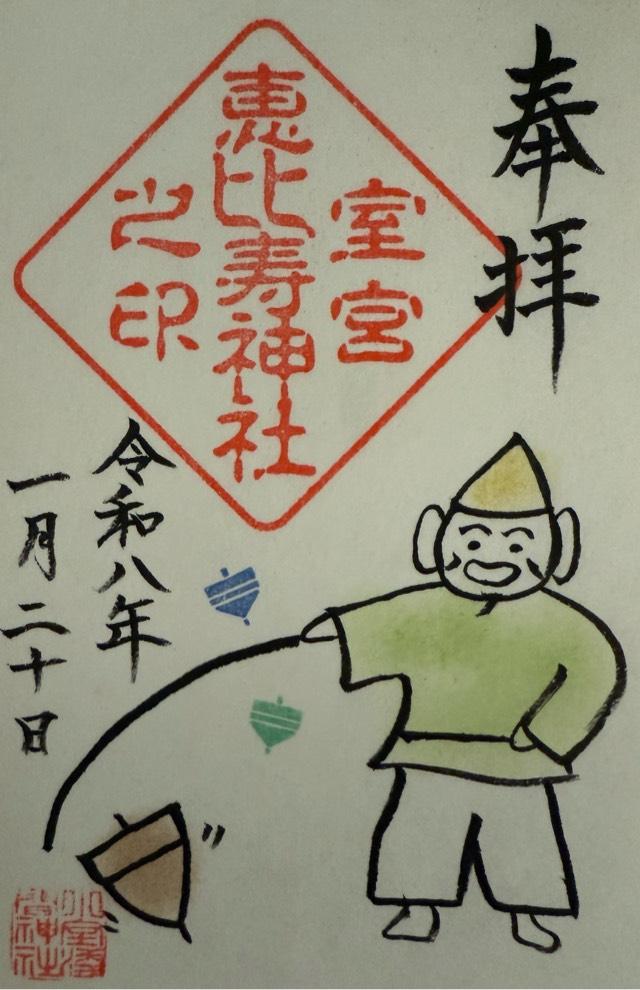 奉拝
室宮
恵比寿神社
之印
令和八年
一月二十日